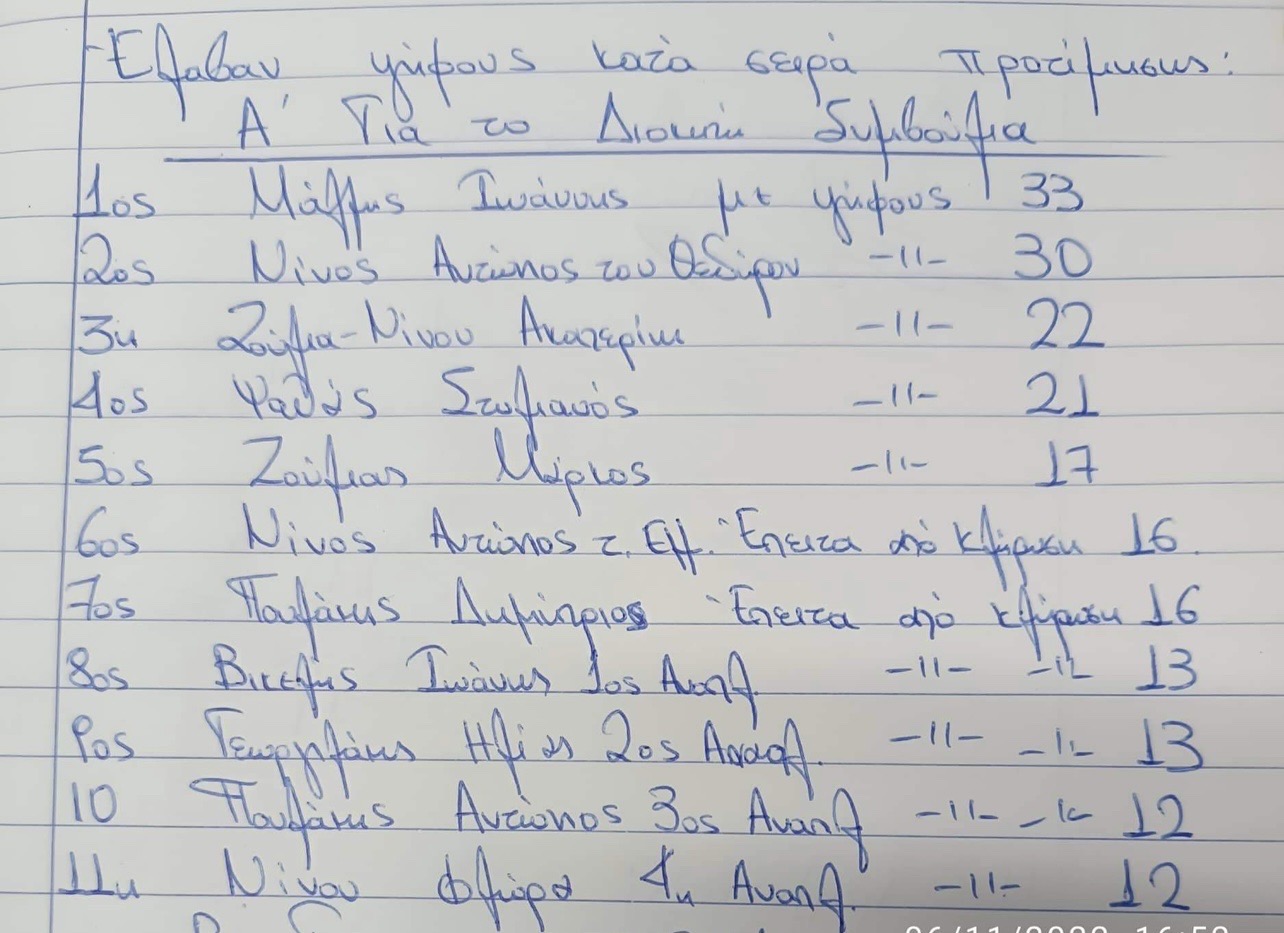 Ελαβαν ψήφους κατά σειρά προτίμησης:
Α' Για το Διοικητι Συμβούλια
1ος Μάλλης Ιωάννης με ψήφους 33
2ος Νίνος Αντώνιος του Θεδώρου -11- 30
3η Ζούλια-Νίνου Αικατερίνη -11- 22
4ος Ψαθάς Στυλιανός -11- 21
5ος Ζούλιας Μάριος -11- 17
6ος Νίνος Αντώνιος τ. Ελλ. Έπειτα από κλήρωση 16
7ος Παυλάκης Δημήτριος Έπειτα από κλήρωση 16
8ος Βικελής Ιωάννης 1ος Αναπλ. -11- -11- 13
9ος Γεωργιλάκης Ηλίας 2ος Αναπλ. -11- -11- 13
10 Παυλάκης Αντώνιος 3ος Αναπλ -11- -11- 12
11η Νίνου Φλώρα 4η Αναπλ. -11- 12